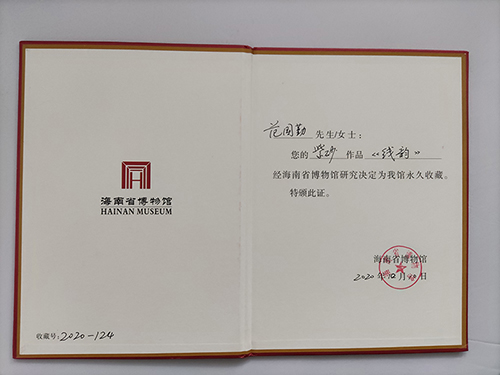 海南省博物馆
HAINAN MUSEUM
收藏号：2020-124
范国勤 先生/女士：
您的 紫砂 作品 《线韵》
经海南省博物馆研究决定为我馆永久收藏。
特颁此证。
海南省博物馆
2020 年 12 月 10 日